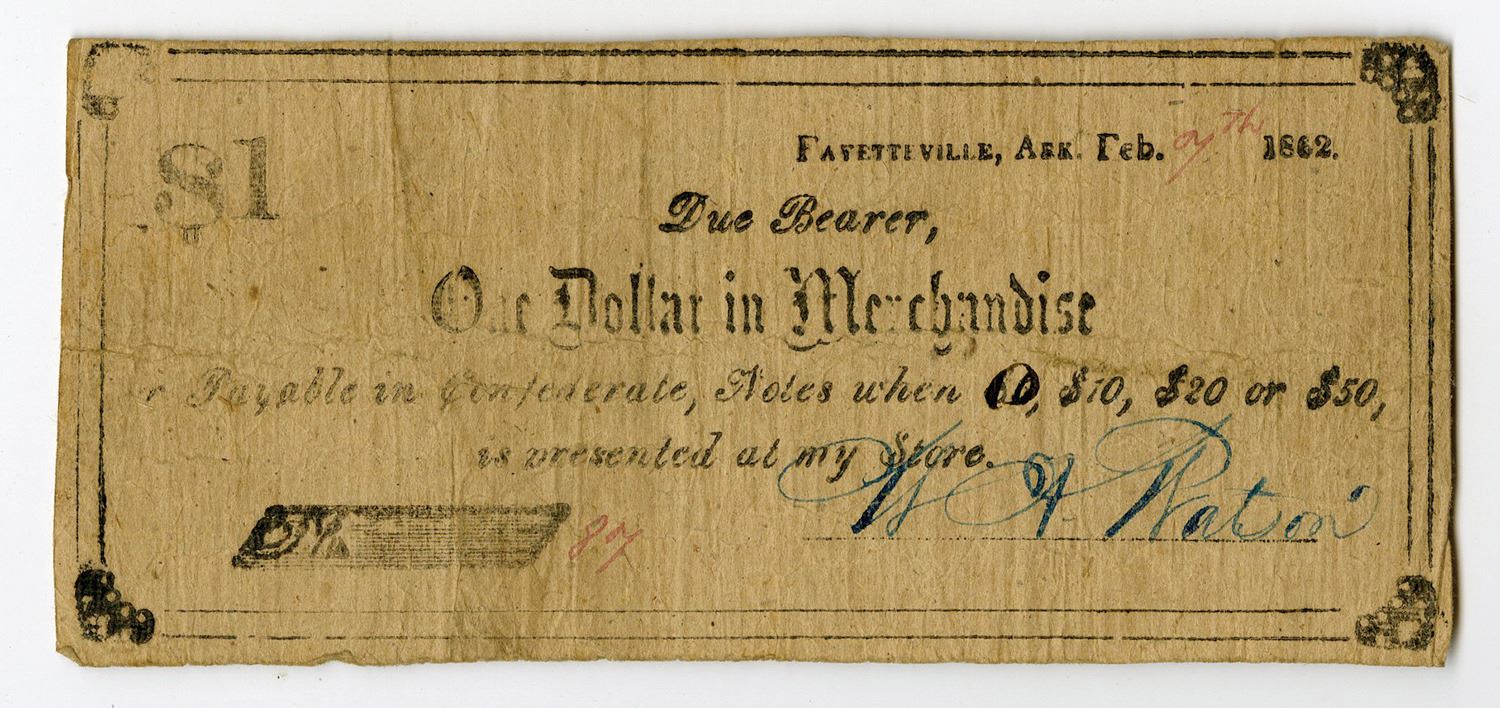 $1
Fayetteville, Ark. Feb. 7th 1862.
Due Bearer,
One Dollar in Merchandise
or Payable in Confederate, Notes when $10, $20 or $50,
is presented at my Store.
W A Watson
87